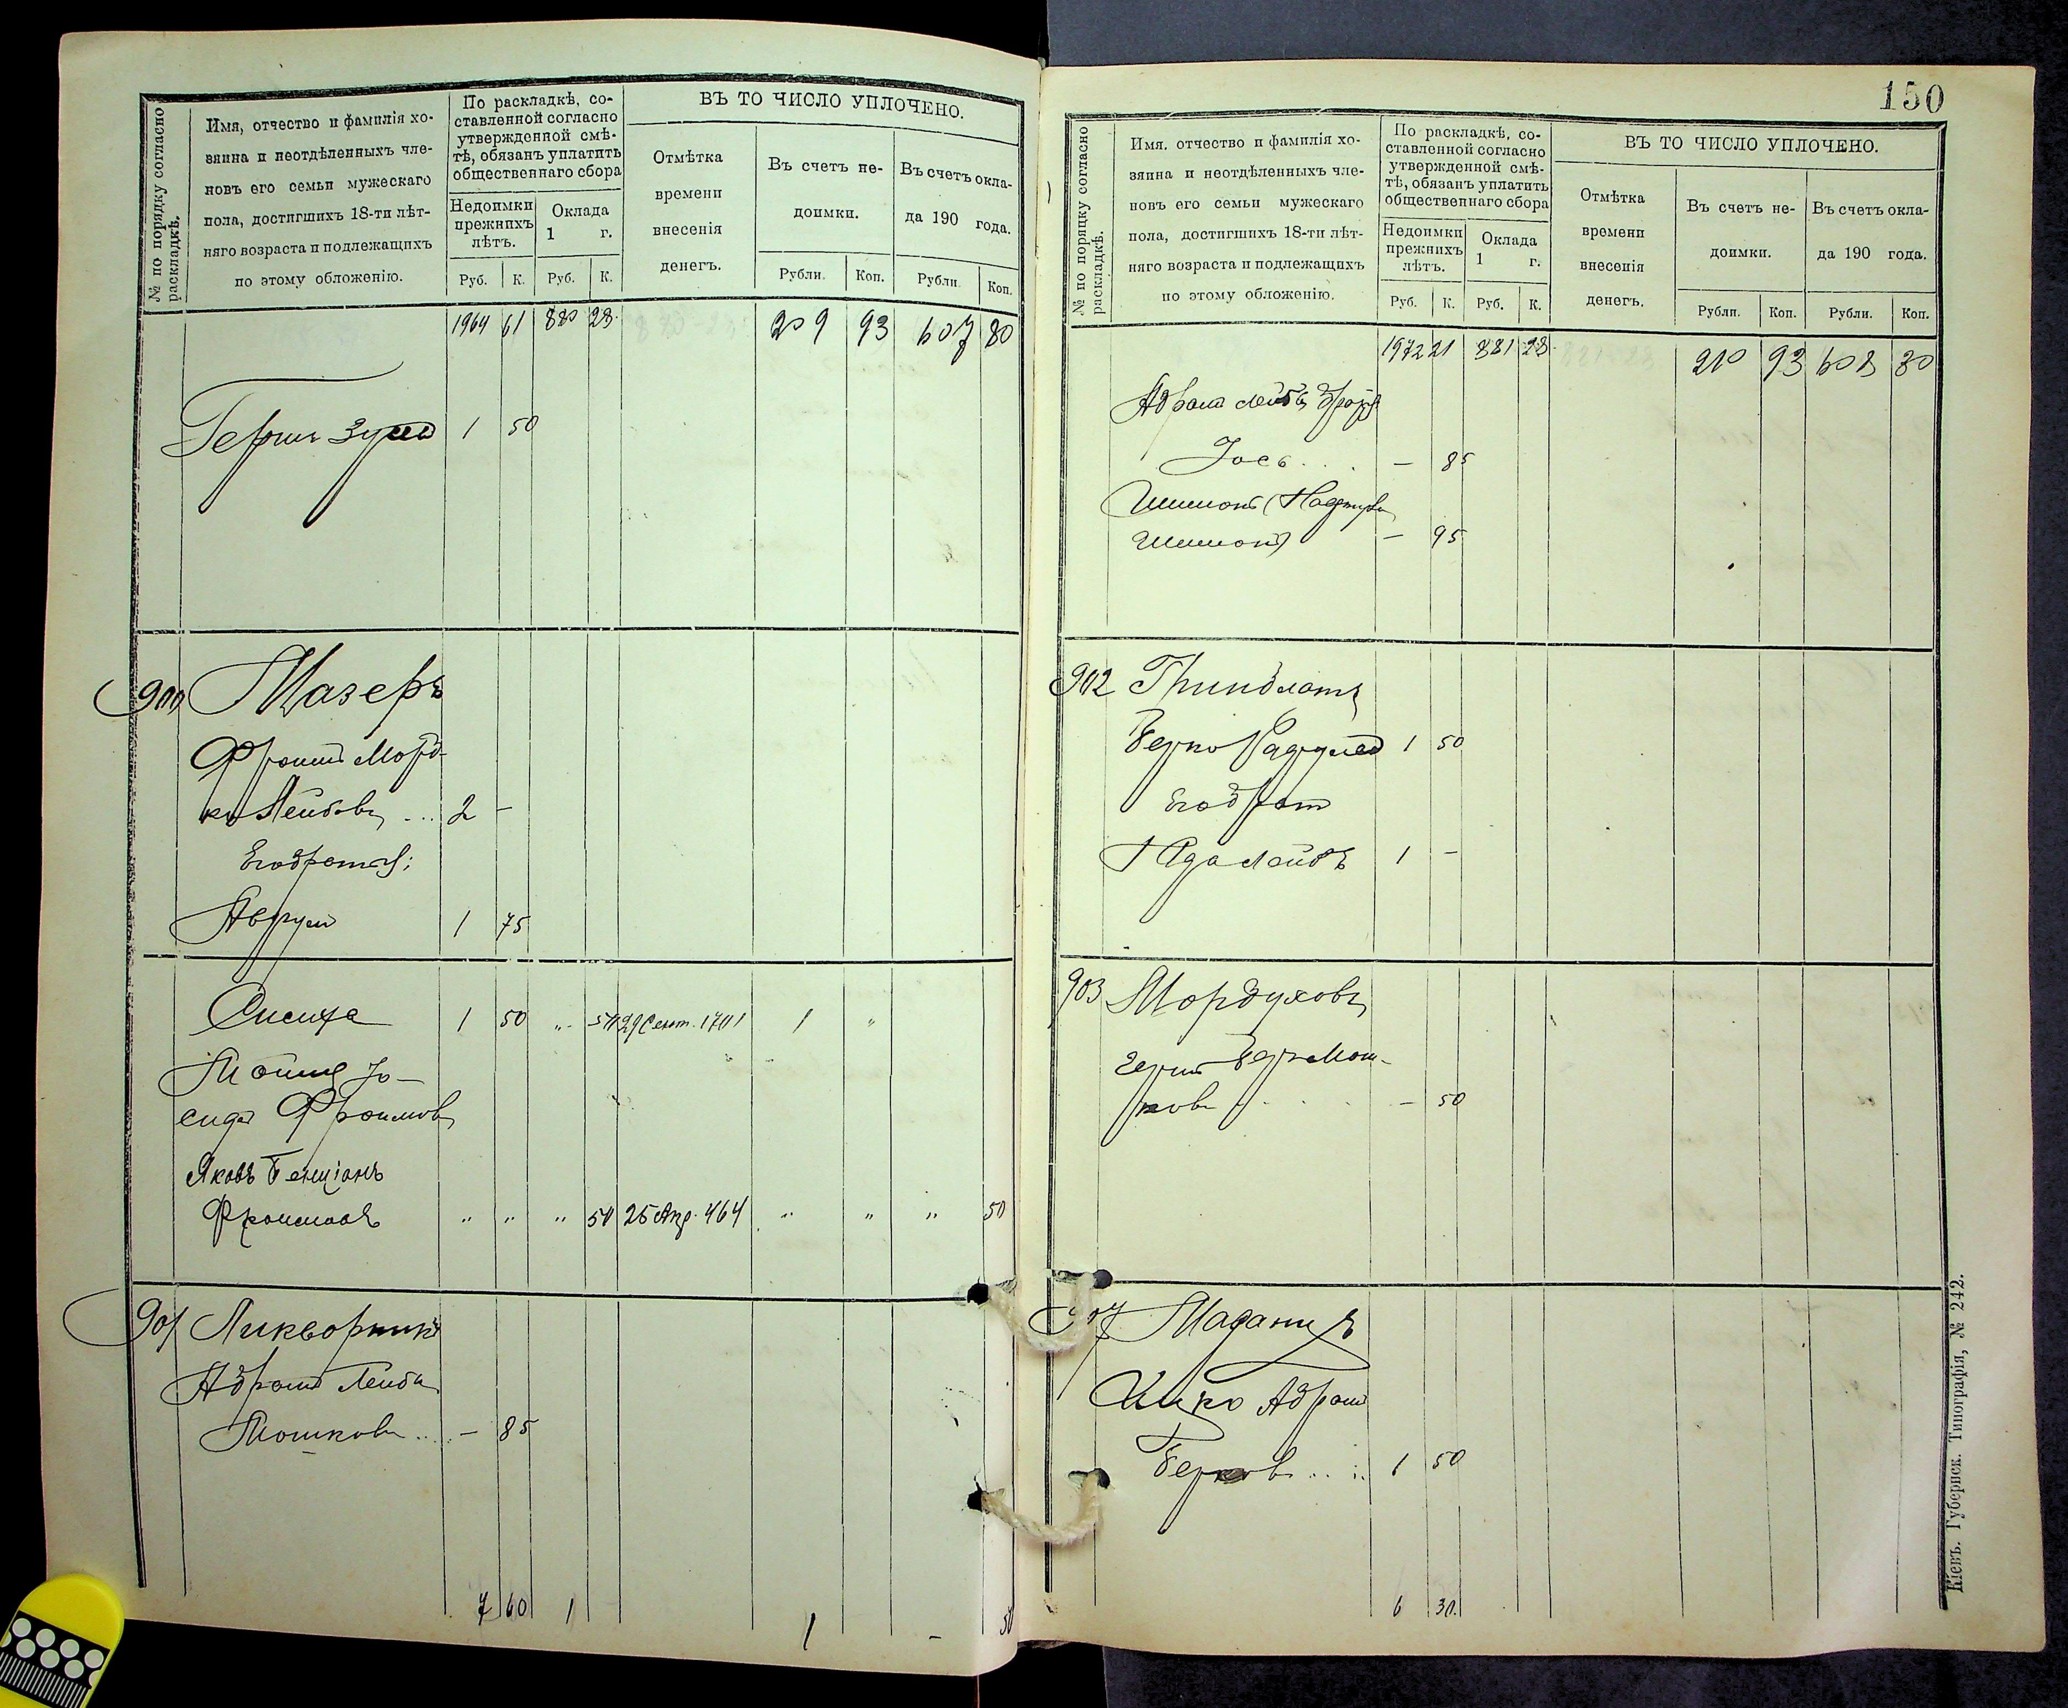 № по порядку согласно раскладкѣ.
Имя, отчество и фамилія хо-
зяина и неотдѣленныхъ чле-
новъ его семьи мужескаго
пола, достигшихъ 18-ти лѣт-
няго возраста и подлежащихъ
по этому обложенію.
По раскладкѣ, со-
ставленной согласно
утвержденной смѣ-
тѣ, обязанъ уплатить
общественнаго сбора
Недоимки
прежнихъ
лѣтъ.
Оклада
1 г.
Руб. К. Руб. К.
ВЪ ТО ЧИСЛО УПЛОЧЕНО.
Отмѣтка
времени
внесенія
денегъ.
Въ счетъ не-
доимки.
Въ счетъ окла-
да 190 года.
Рубли. Коп. Рубли. Коп.
1964 61 880 28 209 93 607 80
Герш 1 50
900 Мазеръ
ФроимъМорд-
ко Лейбовъ ... 2 -
Его братья:
Аврумъ 1 75
Сисиха 1 50 " 50 29 Сент. 1701 1 "
Мошко Іо-
сифъ Фроимовъ
Яковъ Бенціонъ
Фроимовъ " " " 50 25 Апр. 464 " " " 50
901 Ликворникъ
Абрамъ Лейба
Мошковъ .... - 85
7 60 1 1 - 50
150
№ по порядку согласно раскладкѣ.
Имя. отчество и фамилія хо-
зяина и неотдѣленныхъ чле-
новъ его семьи мужескаго
пола, достигшихъ 18-ти лѣт-
няго возраста и подлежащихъ
по этому обложенію.
По раскладкѣ, со-
ставленной согласно
утвержденной смѣ-
тѣ, обязанъ уплатить
общественнаго сбора
Недоимки
прежнихъ
лѣтъ.
Оклада
1 г.
Руб. К. Руб. К.
ВЪ ТО ЧИСЛО УПЛОЧЕНО.
Отмѣтка
времени
внесенія
денегъ.
Въ счетъ не-
доимки.
Въ счетъ окла-
да 190 года.
Рубли. Коп. Рубли. Коп.
1972 21 881 28 210 93 608 30
Абрамъ Лейба
Іосъ . . . - 85
Шимонъ
Шимонъ) - 95
902 Гринблатъ
Берко 1 50
Его братъ
Лейбъ 1 -
903 Мордуховъ
Герш Берко Мош-
ковъ . . . - 50
Абрам
Берковъ .. : . 1 50
6 30
Кіевъ. Губернск. Типографія, № 242.